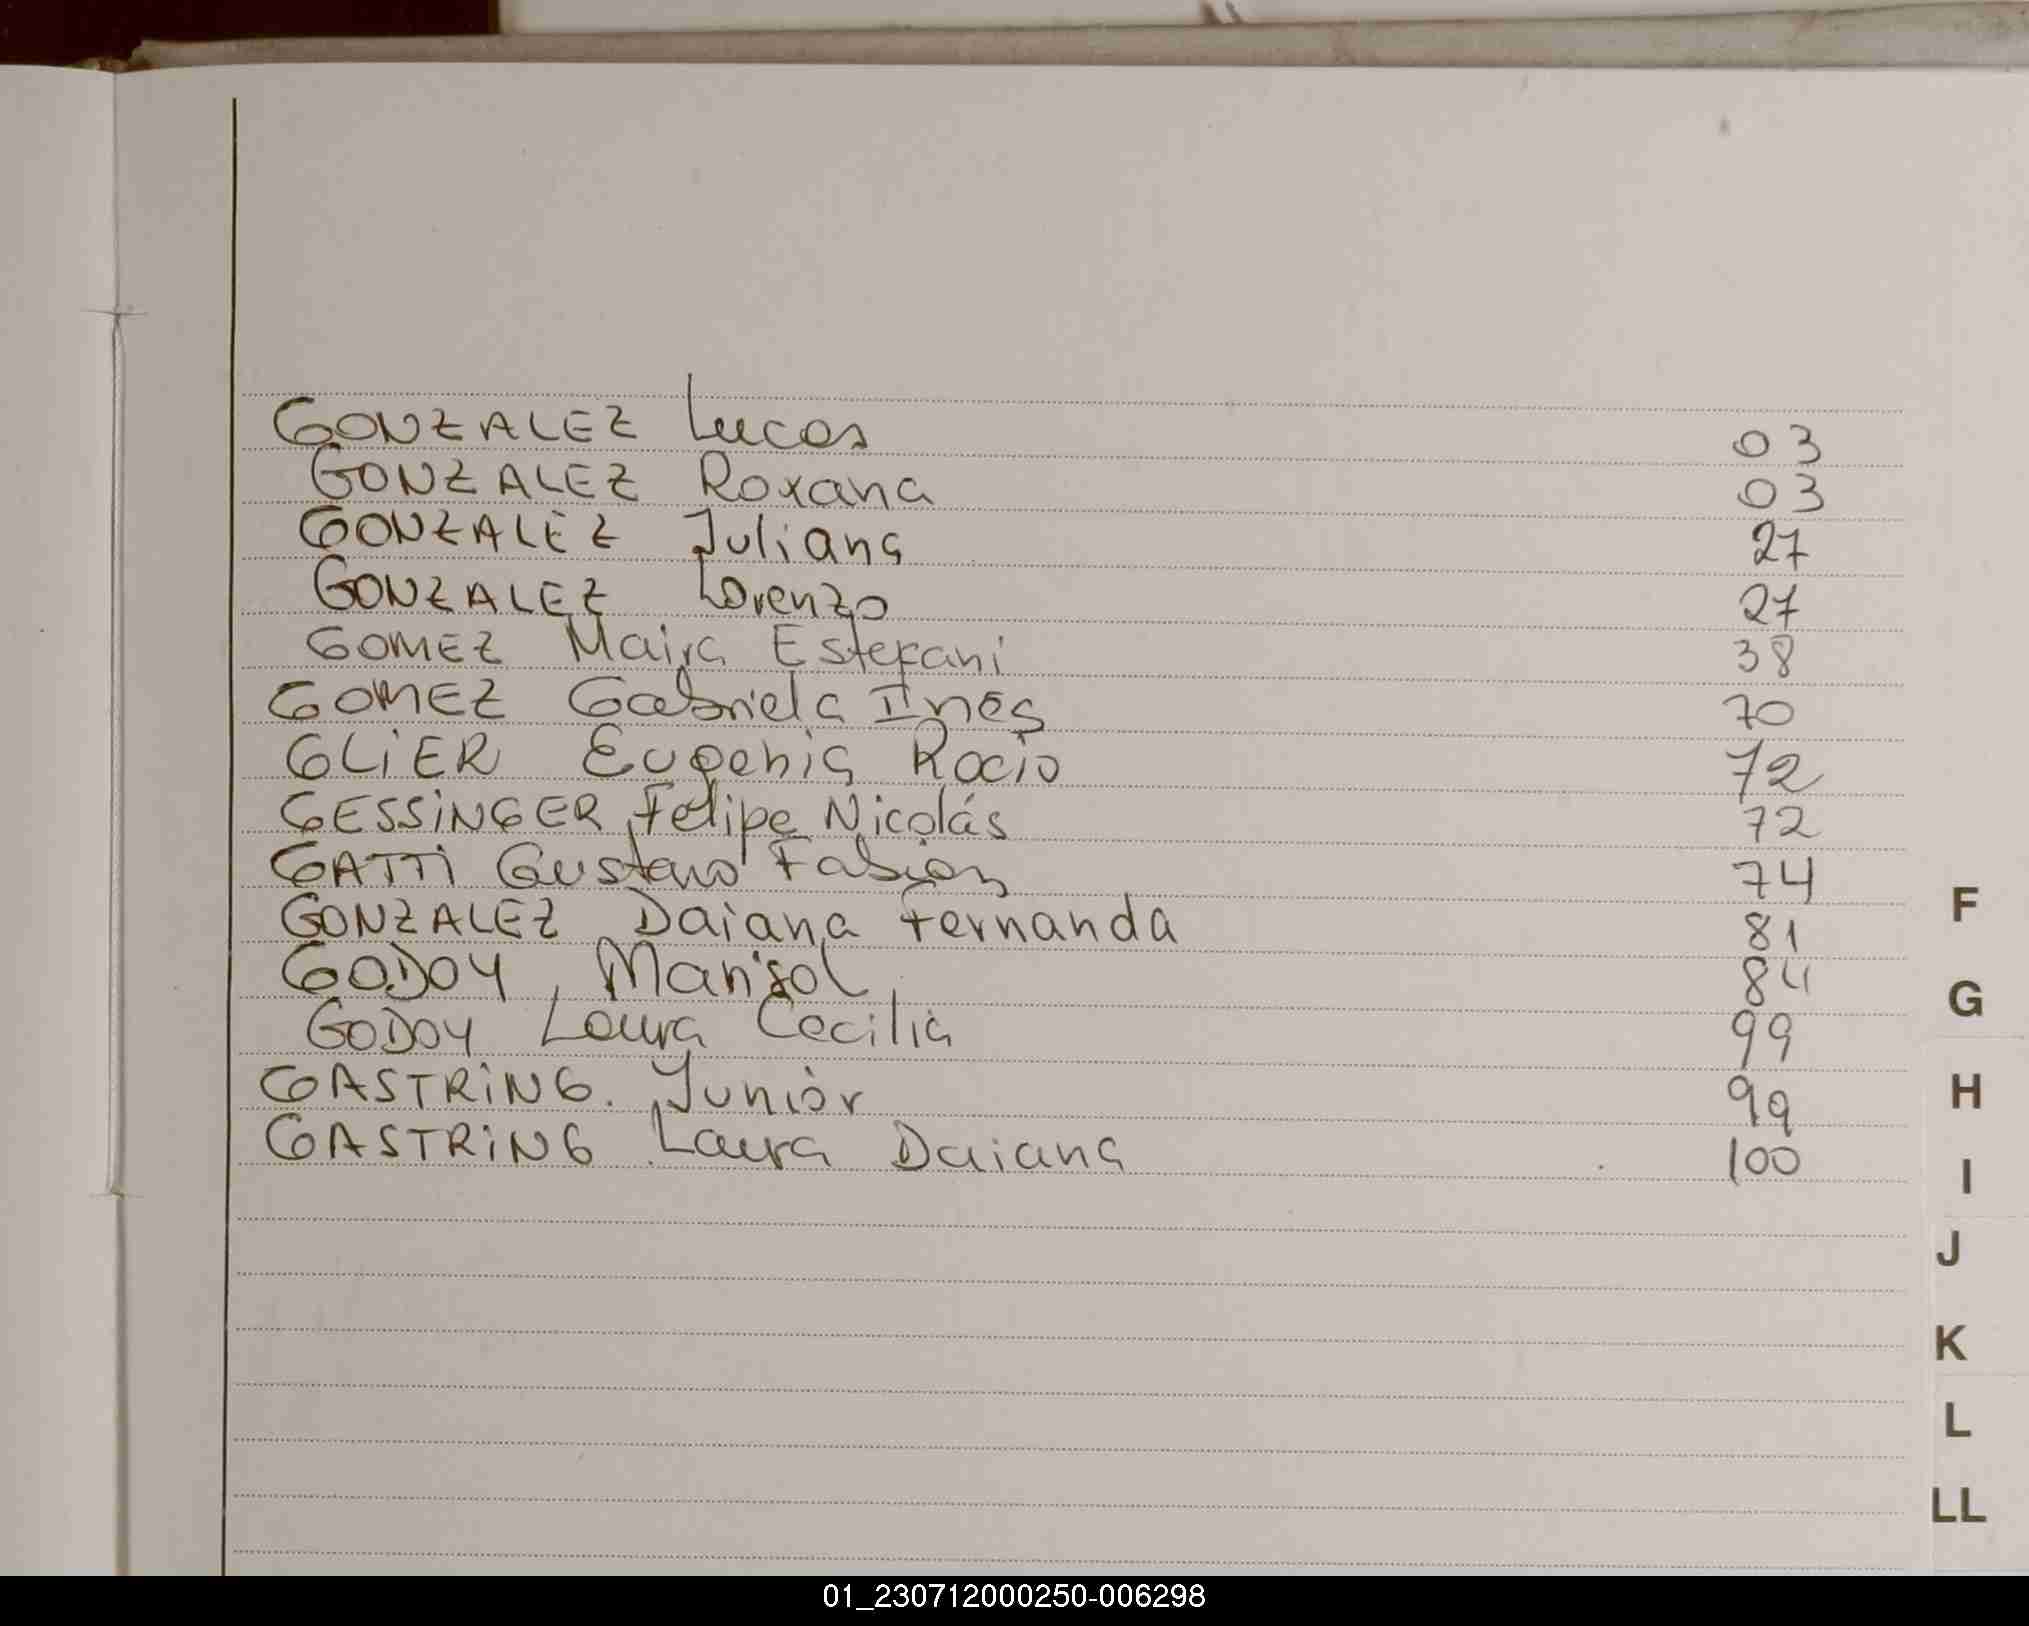 GONZALEZ Lucas 03
GONZALEZ Roxana 03
GONZALEZ Juliana 27
GONZALEZ Lorenzo 27
GOMEZ Maira Estefani 38
GOMEZ Gabriela Inés 70
GLIER Eugenia Rocio 72
GESSINGER, Felipe Nicolás 72
GATTI Gustavo Fabian 74
GONZALEZ Daiana Fernanda 81
GODOY, Marisol 84
GODOY Laura Cecilia 99
GASTRING. Junior 99
GASTRING Laura Daiana 100
F
G
H
I
J
K
L
LL
01_230712000250-006298